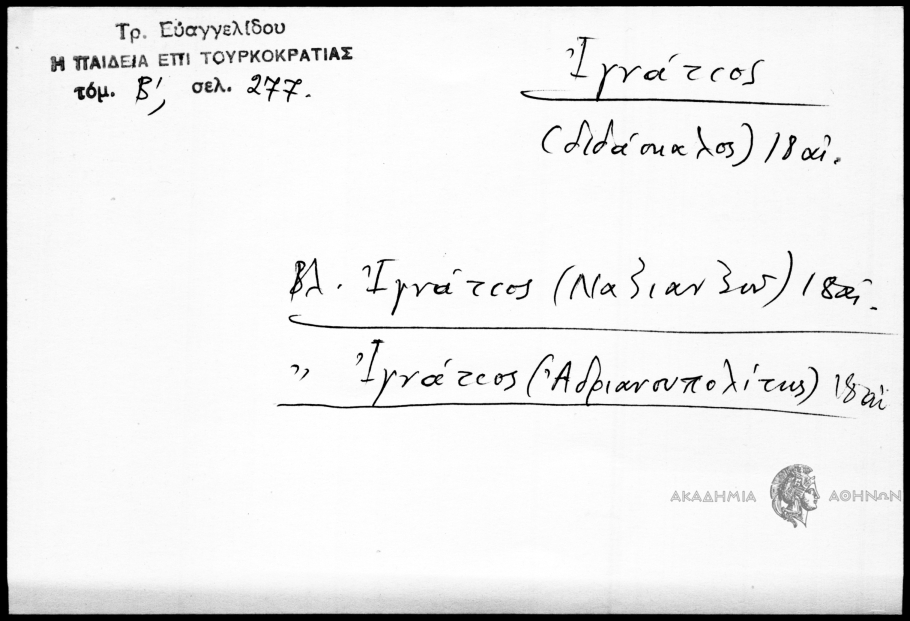 Τρ. Εὐαγγελίδου
Η ΠΑΙΔΕΙΑ ΕΠΙ ΤΟΥΡΚΟΚΡΑΤΙΑΣ
τόμ. Β', σελ. 277.
Ἰγνάτιος
(διδάσκαλος) 18 αἰ.
Βλ. Ἰγνάτιος (Ναζιανζοῦ) 18αἰ.
〃 Ἰγνάτιος (Ἀδριανουπολίτης) 18αἰ
ΑΚΑΔΗΜΙΑ ΑΘΗΝΩΝ